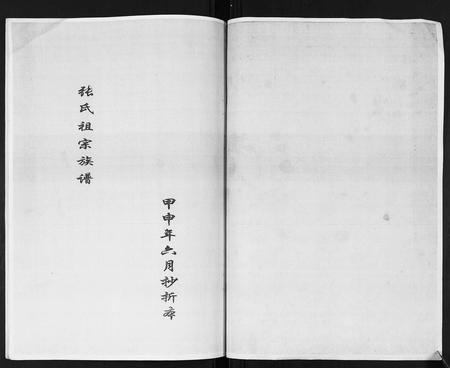 甲申年六月抄折本
张氏祖宗族谱